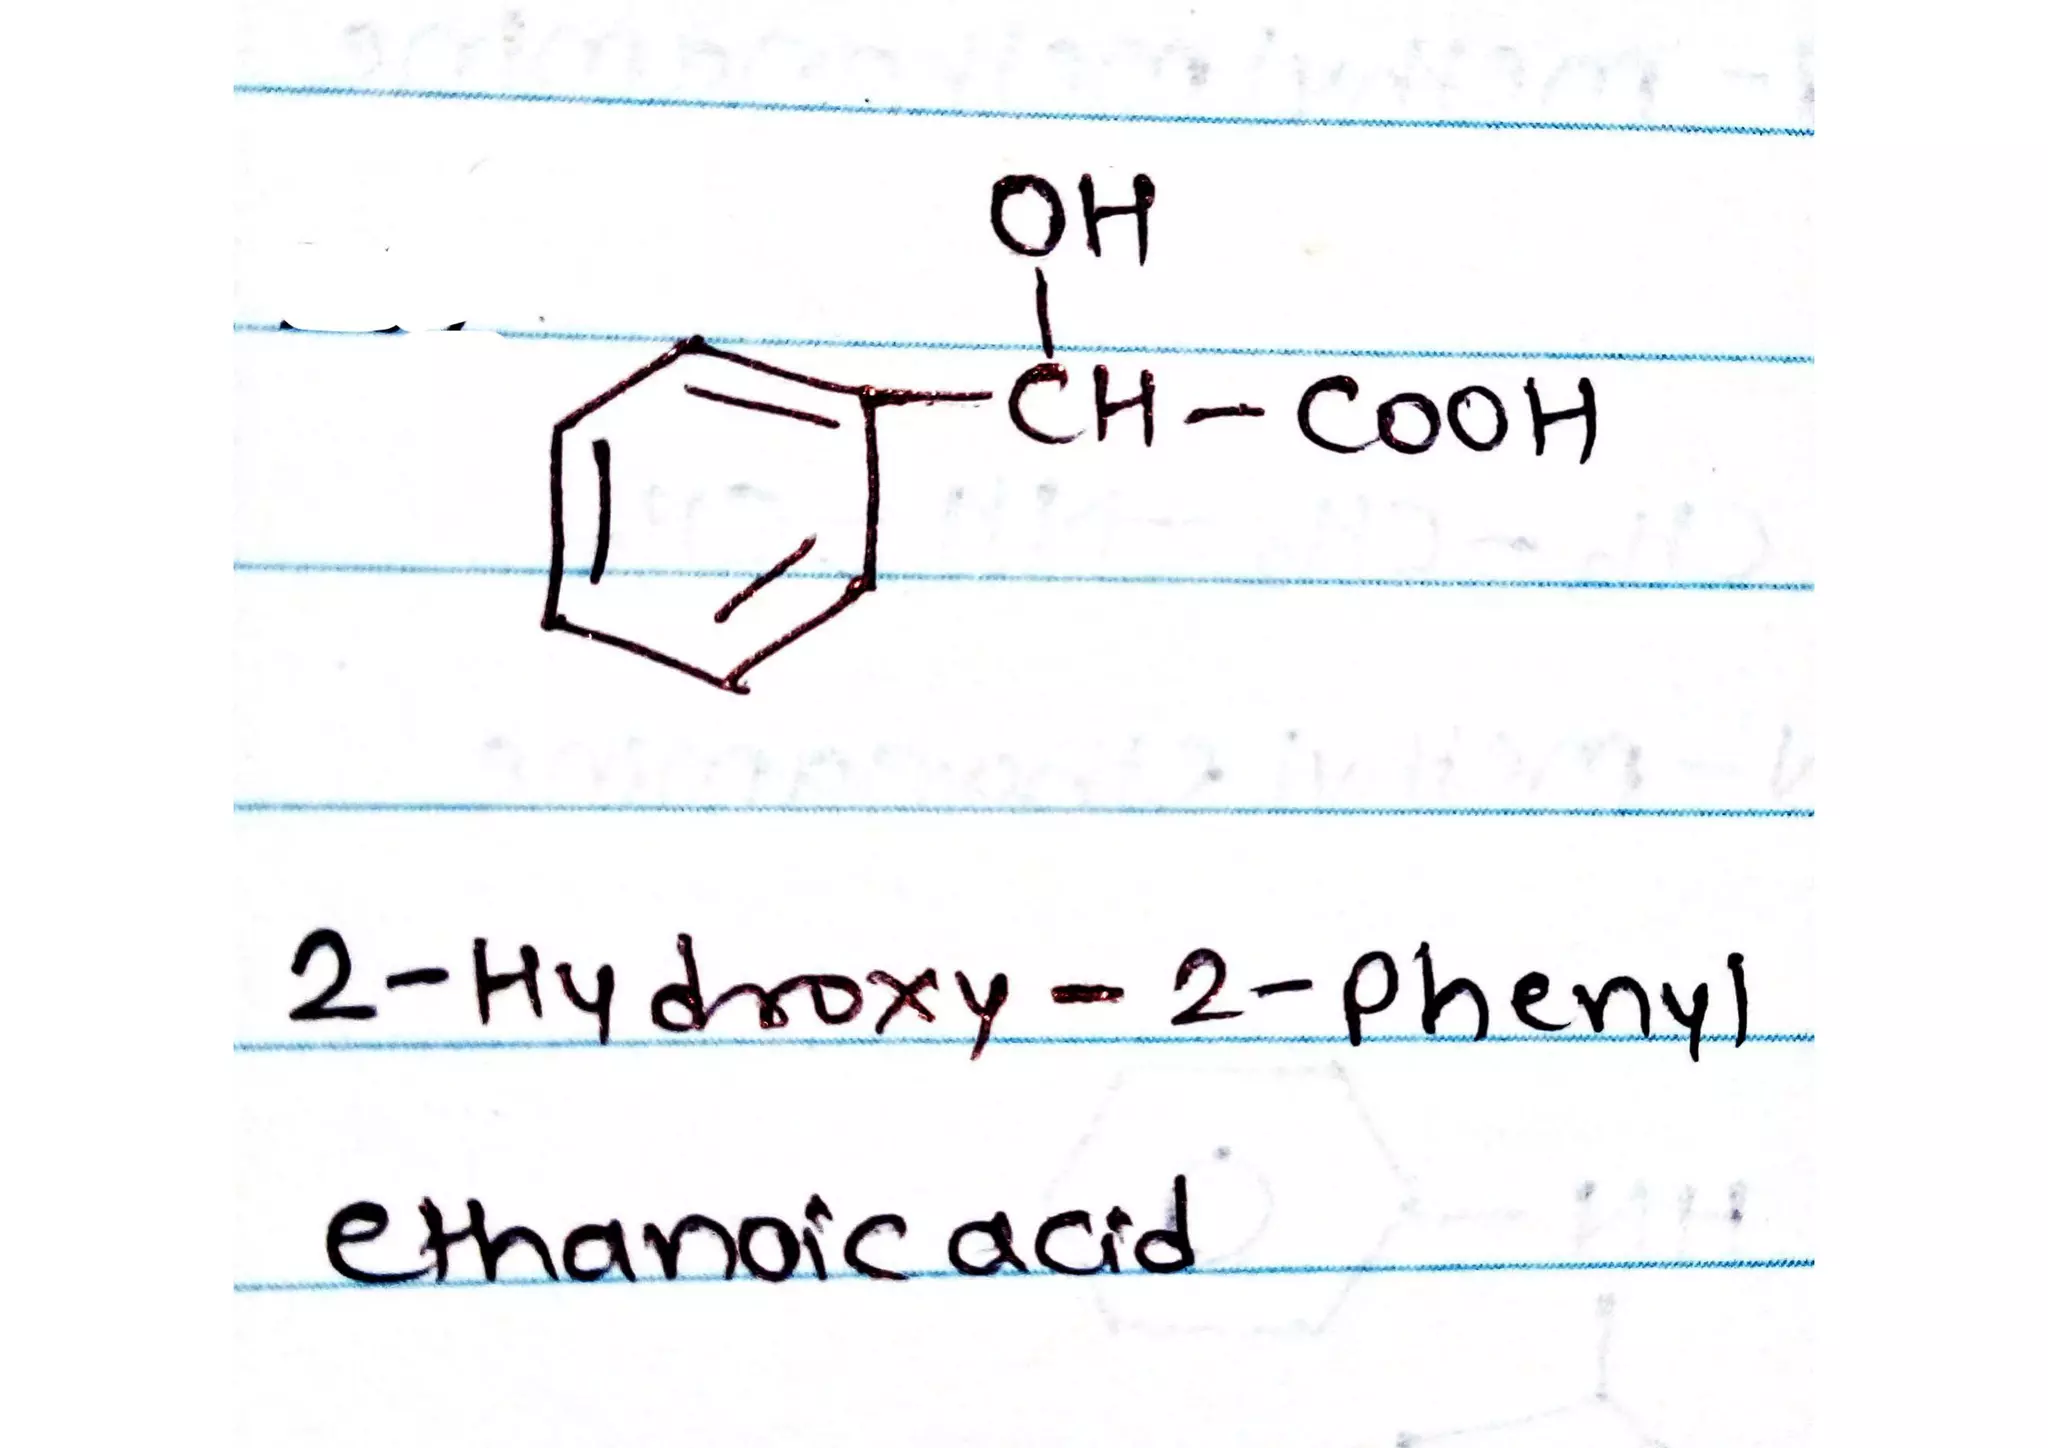 OH
CH - COOH
2-Hydroxy-2-Phenyl
ethanoic acid